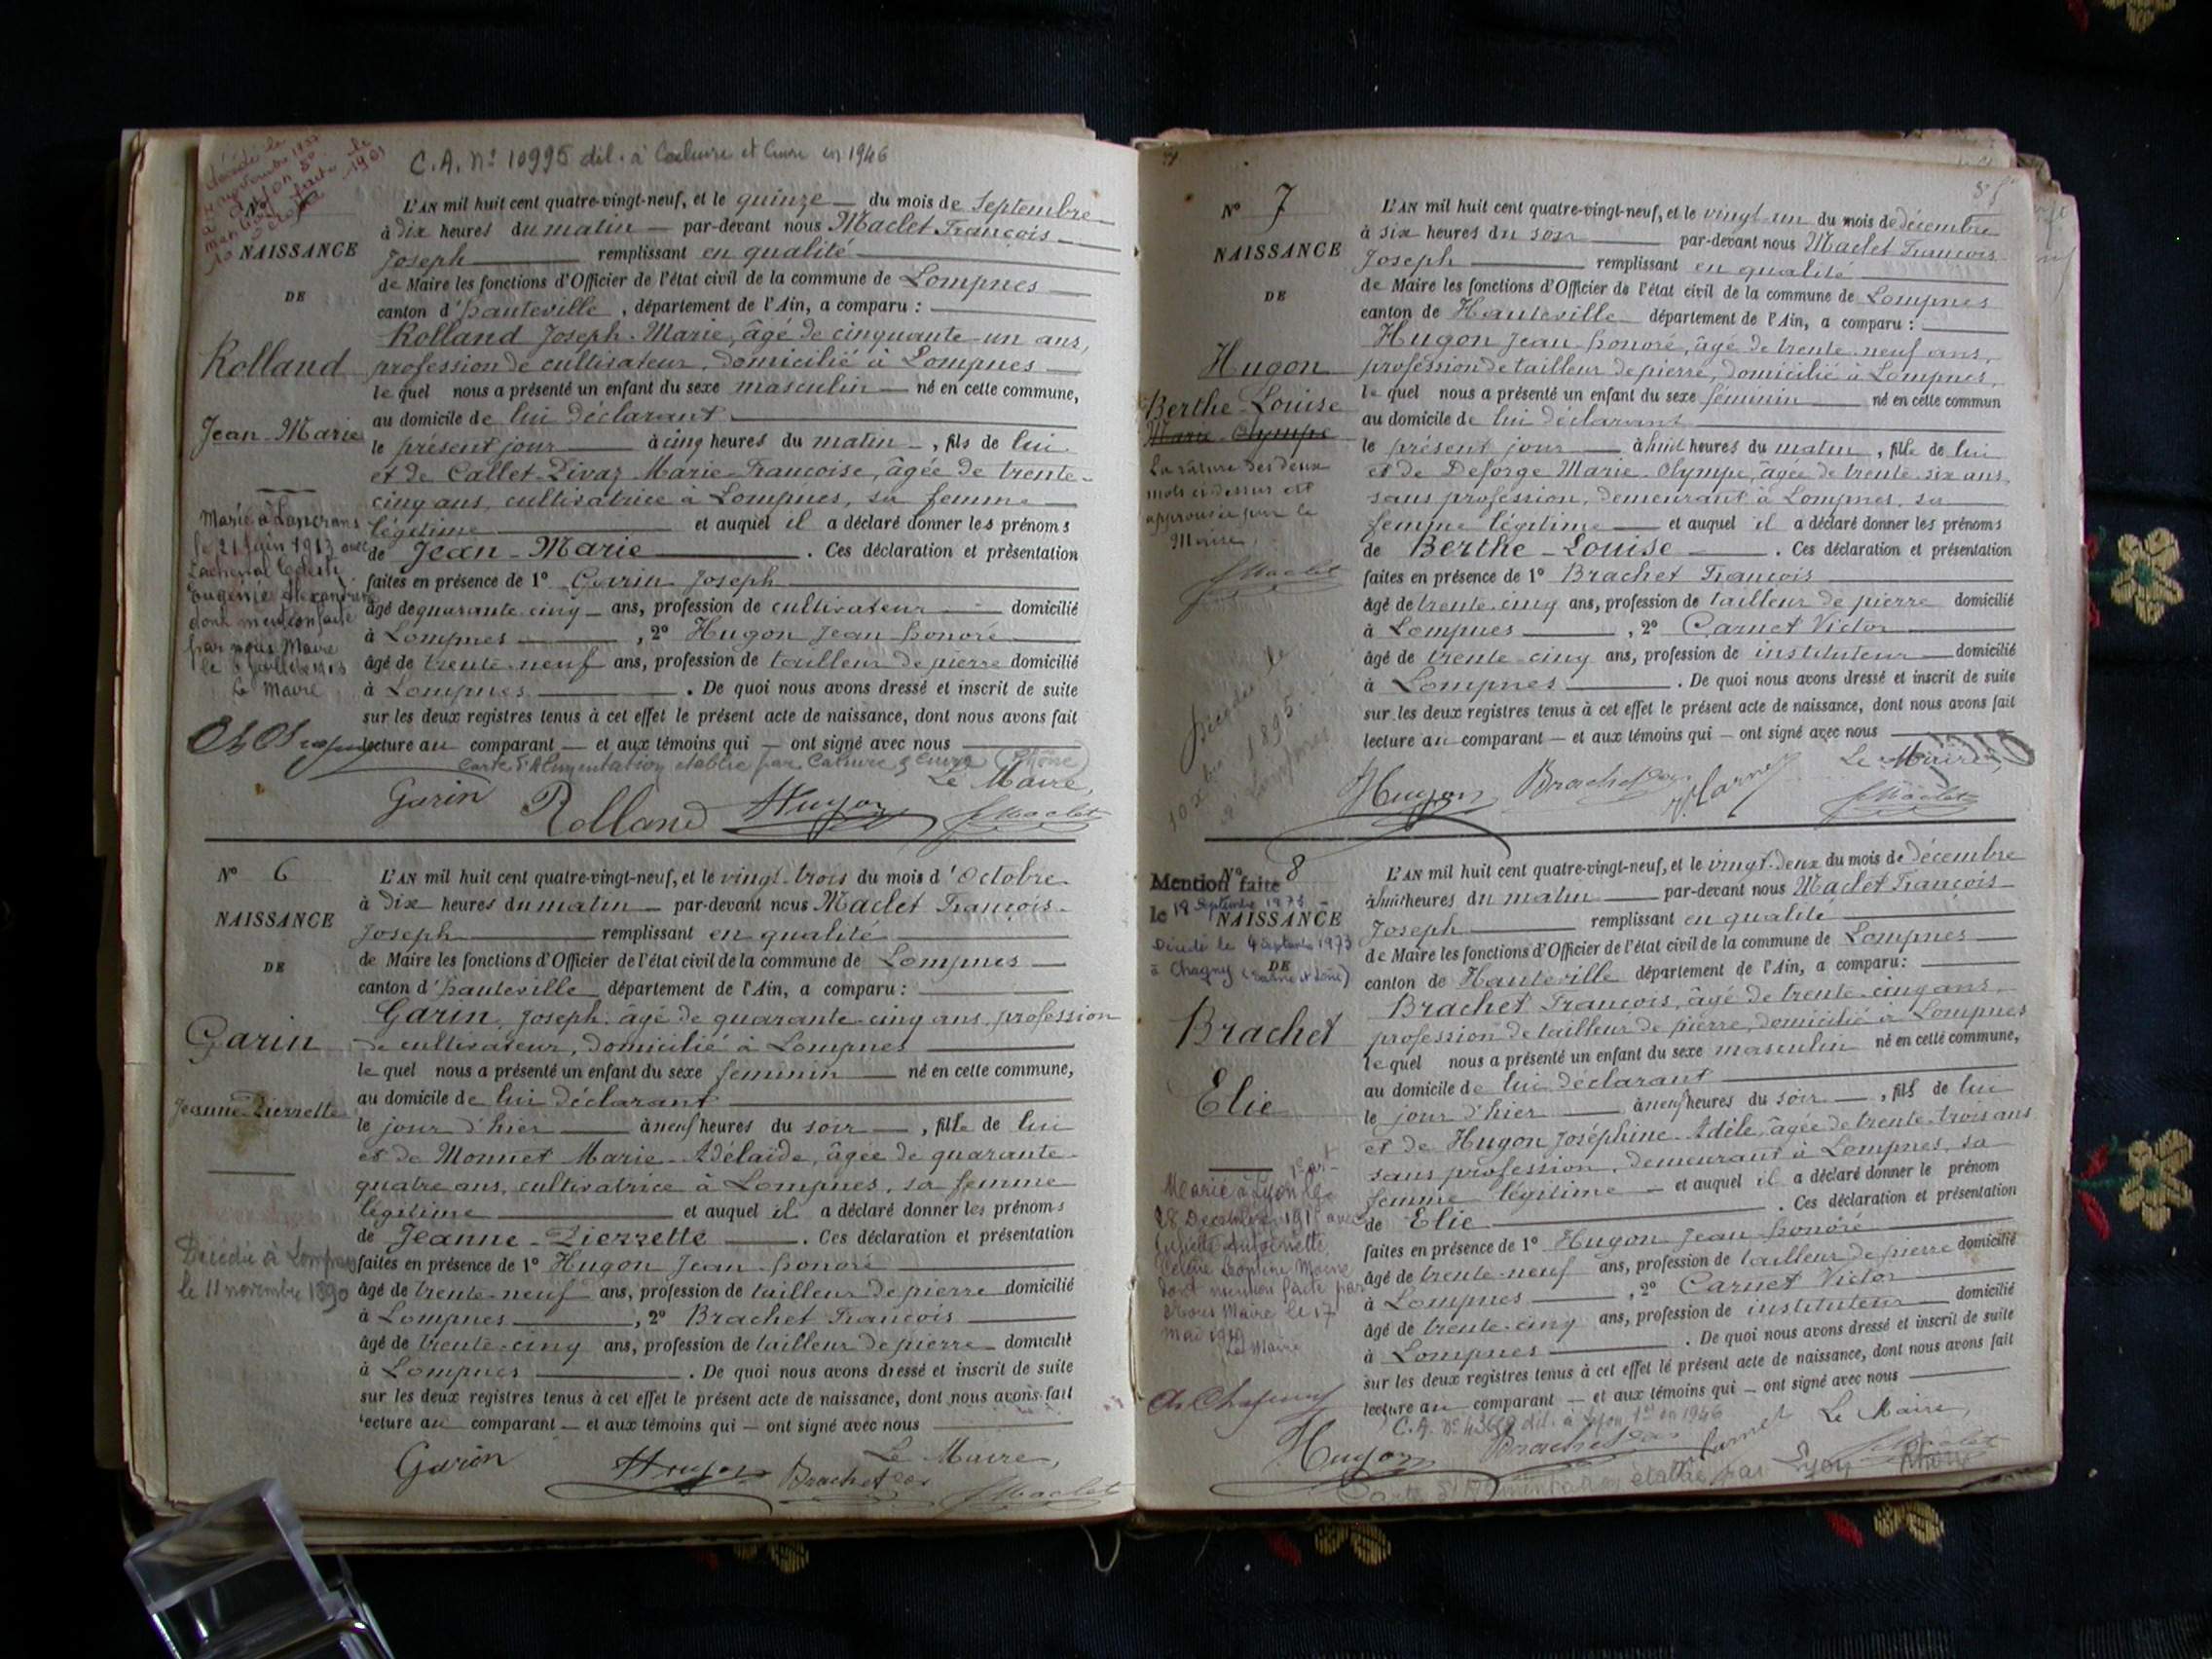 C.A. N° 10995 dél. à Caluire et Cuire en 1946
décédé le
NAISSANCE
DE
Rolland
Jean-Marie
L'AN mil huit cent quatre-vingt-neuf, et le quinze du mois de Septembre
à dix heures du matin par-devant nous Maclet François
Joseph remplissant en qualité
de Maire les fonctions d'Officier de l'état civil de la commune de Lompnes
canton d'hauteville, département de l'Ain, a comparu :
Rolland Joseph-Marie, âgé de cinquante-un ans,
profession de cultivateur, domicilié à Lompnes
lequel nous a présenté un enfant du sexe masculin né en cette commune,
au domicile de lui déclarant
le présent jour à cinq heures du matin, fils de lui
et de Callet-Pivaz Marie-Françoise, âgée de trente-
cinq ans, cultivatrice à Lompnes, sa femme
légitime et auquel il a déclaré donner les prénoms
de Jean-Marie. Ces déclaration et présentation
faites en présence de 1° Garin Joseph
âgé de quarante-cinq ans, profession de cultivateur domicilié
à Lompnes, 2° Hugon Jean-honoré
âgé de trente-neuf ans, profession de tailleur de pierre domicilié
à Lompnes. De quoi nous avons dressé et inscrit de suite
sur les deux registres tenus à cet effet le présent acte de naissance, dont nous avons fait
lecture au comparant et aux témoins qui ont signé avec nous
Carte d'Alimentation établie par Caluire & Cuire (Rhône)
Le Maire,
Garin Rolland Hugon Maclet
Marié à Lancrans
le 21 Juin 1913 avec
Lachenal
Eugénie Alexandrine
dont mention faite
par nous Maire
le Juillet 1913
Le Maire
N° 6
NAISSANCE
DE
Garin
Jeanne-Pierrette
L'AN mil huit cent quatre-vingt-neuf, et le vingt-trois du mois d'Octobre
à dix heures du matin par-devant nous Maclet François-
Joseph remplissant en qualité
de Maire les fonctions d'Officier de l'état civil de la commune de Lompnes
canton d'hauteville département de l'Ain, a comparu :
Garin, Joseph, âgé de quarante-cinq ans, profession
de cultivateur, domicilié à Lompnes
lequel nous a présenté un enfant du sexe féminin né en cette commune,
au domicile de lui déclarant
le jour d'hier à neuf heures du soir, fille de lui
et de Monnet Marie-Adélaïde, âgée de quarante-
quatre ans, cultivatrice à Lompnes, sa femme
légitime et auquel il a déclaré donner les prénoms
de Jeanne-Pierrette. Ces déclaration et présentation
faites en présence de 1° Hugon Jean-honoré
âgé de trente-neuf ans, profession de tailleur de pierre domicilié
à Lompnes, 2° Brachet François
âgé de trente-cinq ans, profession de tailleur de pierre domicilié
à Lompnes. De quoi nous avons dressé et inscrit de suite
sur les deux registres tenus à cet effet le présent acte de naissance, dont nous avons fait
lecture au comparant et aux témoins qui ont signé avec nous
Le Maire,
Garin Hugon Brachet Maclet
Décédée à Lompnes
le 11 novembre 1890
N° 7
NAISSANCE
DE
Hugon
Berthe-Louise
Marie-Olympe
La râture des deux
mots ci-dessus est
approuvée par le
Maire.
Maclet
Décédée le
1895
à Lompnes
L'AN mil huit cent quatre-vingt-neuf, et le vingt-un du mois de décembre
à six heures du soir par-devant nous Maclet François-
Joseph remplissant en qualité
de Maire les fonctions d'Officier de l'état civil de la commune de Lompnes
canton de Hauteville département de l'Ain, a comparu :
Hugon Jean-honoré, âgé de trente-neuf ans,
profession de tailleur de pierre, domicilié à Lompnes,
lequel nous a présenté un enfant du sexe féminin né en cette commun
au domicile de lui déclarant
le présent jour à huit heures du matin, fille de lui
et de Deforge Marie-Olympe, âgée de trente-six ans,
sans profession, demeurant à Lompnes, sa
femme légitime et auquel il a déclaré donner les prénoms
de Berthe-Louise. Ces déclaration et présentation
faites en présence de 1° Brachet François
âgé de trente-cinq ans, profession de tailleur de pierre domicilié
à Lompnes, 2° Carnet Victor
âgé de trente-cinq ans, profession de instituteur domicilié
à Lompnes. De quoi nous avons dressé et inscrit de suite
sur les deux registres tenus à cet effet le présent acte de naissance, dont nous avons fait
lecture au comparant et aux témoins qui ont signé avec nous
Le Maire,
Hugon Brachet V. Carnet Maclet
N° 8
Mention faite
le 18 Septembre 1973
NAISSANCE
Décédé le 4 Septembre 1973
à Chagny (Saône et Loire)
DE
Brachet
Elie
L'AN mil huit cent quatre-vingt-neuf, et le vingt-deux du mois de décembre
à huit heures du matin par-devant nous Maclet François
Joseph remplissant en qualité
de Maire les fonctions d'Officier de l'état civil de la commune de Lompnes
canton de Hauteville département de l'Ain, a comparu :
Brachet François, âgé de trente-cinq ans,
profession de tailleur de pierre, domicilié à Lompnes
lequel nous a présenté un enfant du sexe masculin né en cette commune,
au domicile de lui déclarant
le jour d'hier à neuf heures du soir, fils de lui
et de Hugon Joséphine-Adèle, âgée de trente-trois ans
sans profession, demeurant à Lompnes, sa
femme légitime et auquel il a déclaré donner le prénom
de Elie. Ces déclaration et présentation
faites en présence de 1° Hugon Jean-honoré
âgé de trente-neuf ans, profession de tailleur de pierre domicilié
à Lompnes, 2° Carnet Victor
âgé de trente-cinq ans, profession de instituteur domicilié
à Lompnes. De quoi nous avons dressé et inscrit de suite
sur les deux registres tenus à cet effet lé présent acte de naissance, dont nous avons fait
lecture au comparant et aux témoins qui ont signé avec nous
C.A. N° dél. à Lyon en 1946
Le Maire,
Hugon Brachet Carnet Maclet
Carte d'Alimentation établie par Lyon Rhône
Marié à Lyon le
28 Décembre avec
dont mention faite par
Nous Maire le 17
mai 1919
Le Maire